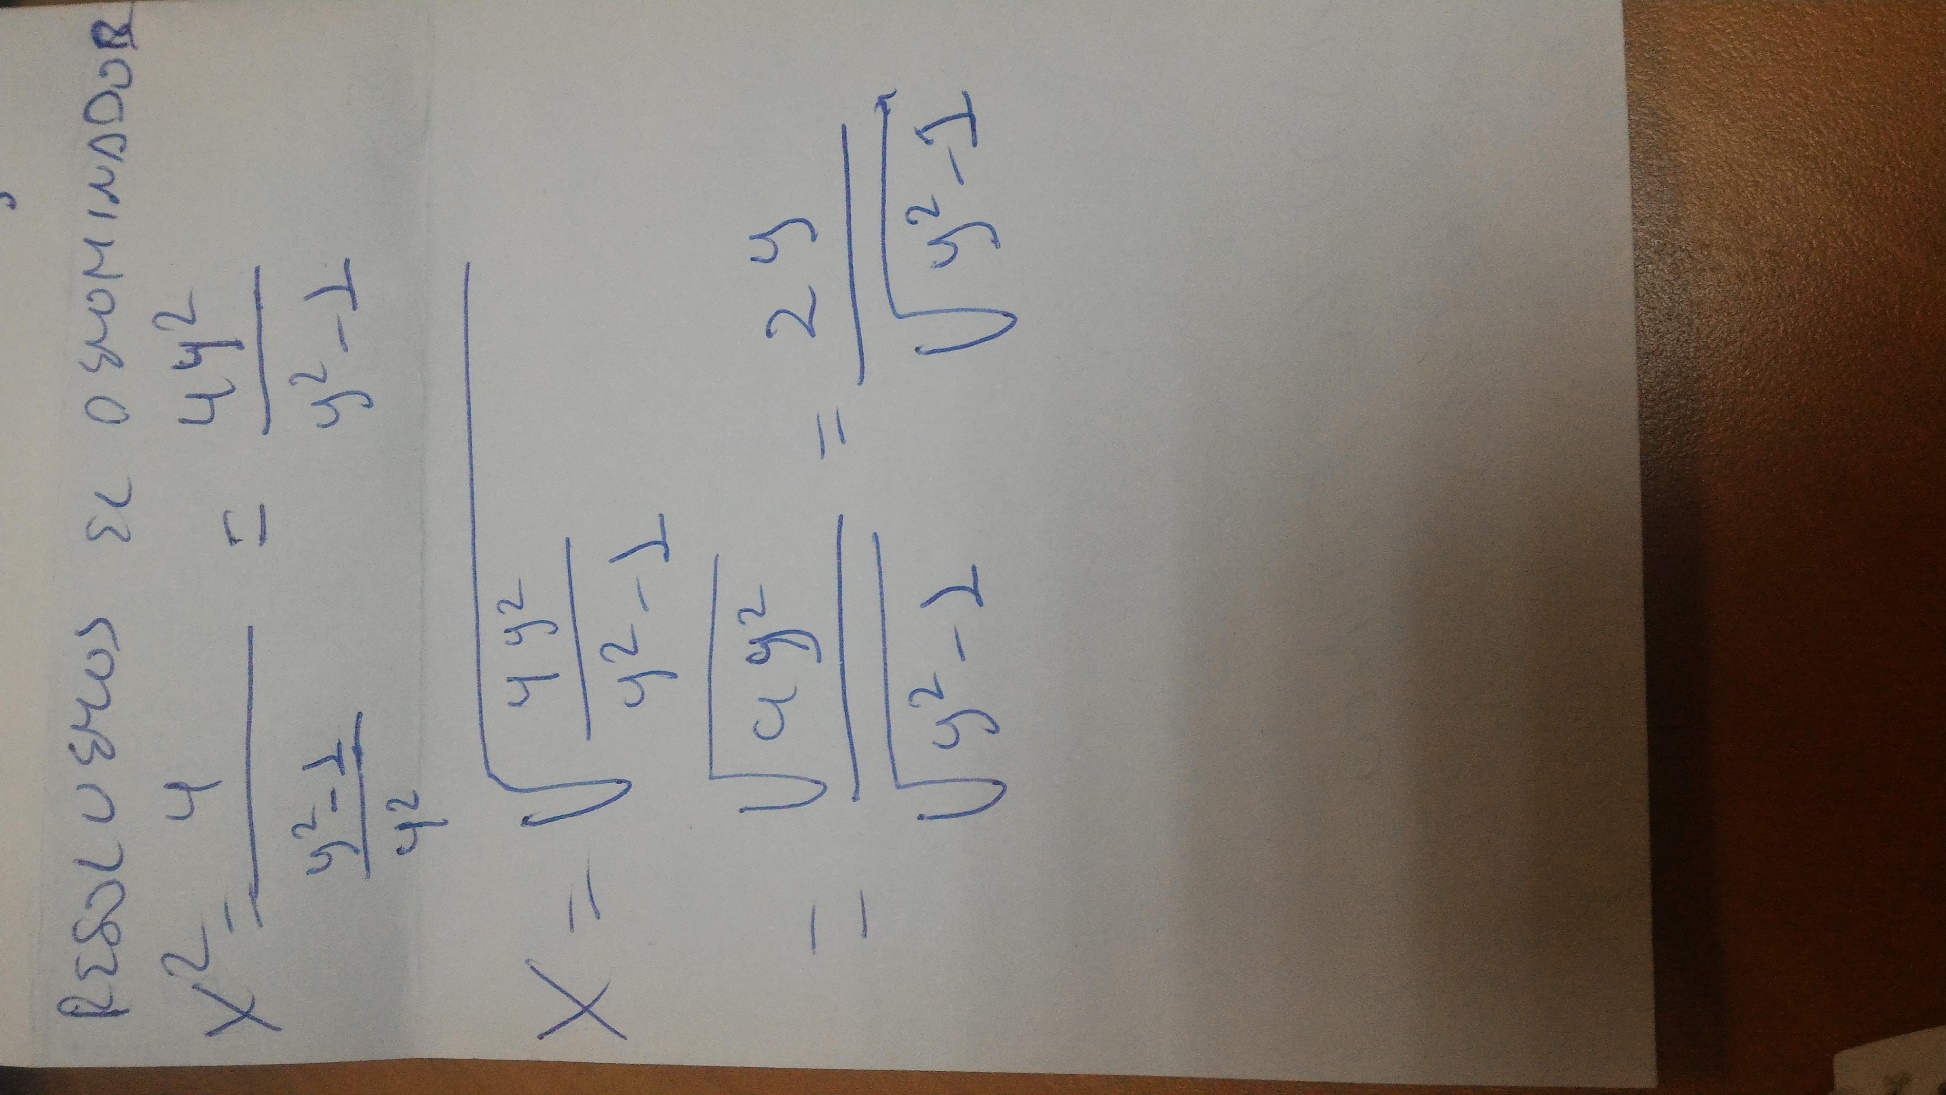 RESOLVEMOS EL DENOMINADOR
x² = 4 / ((y²-1)/y²) = 4y² / (y²-1)
x = √(4y² / (y²-1))
= √(4y²) / √(y²-1) = 2y / √(y²-1)